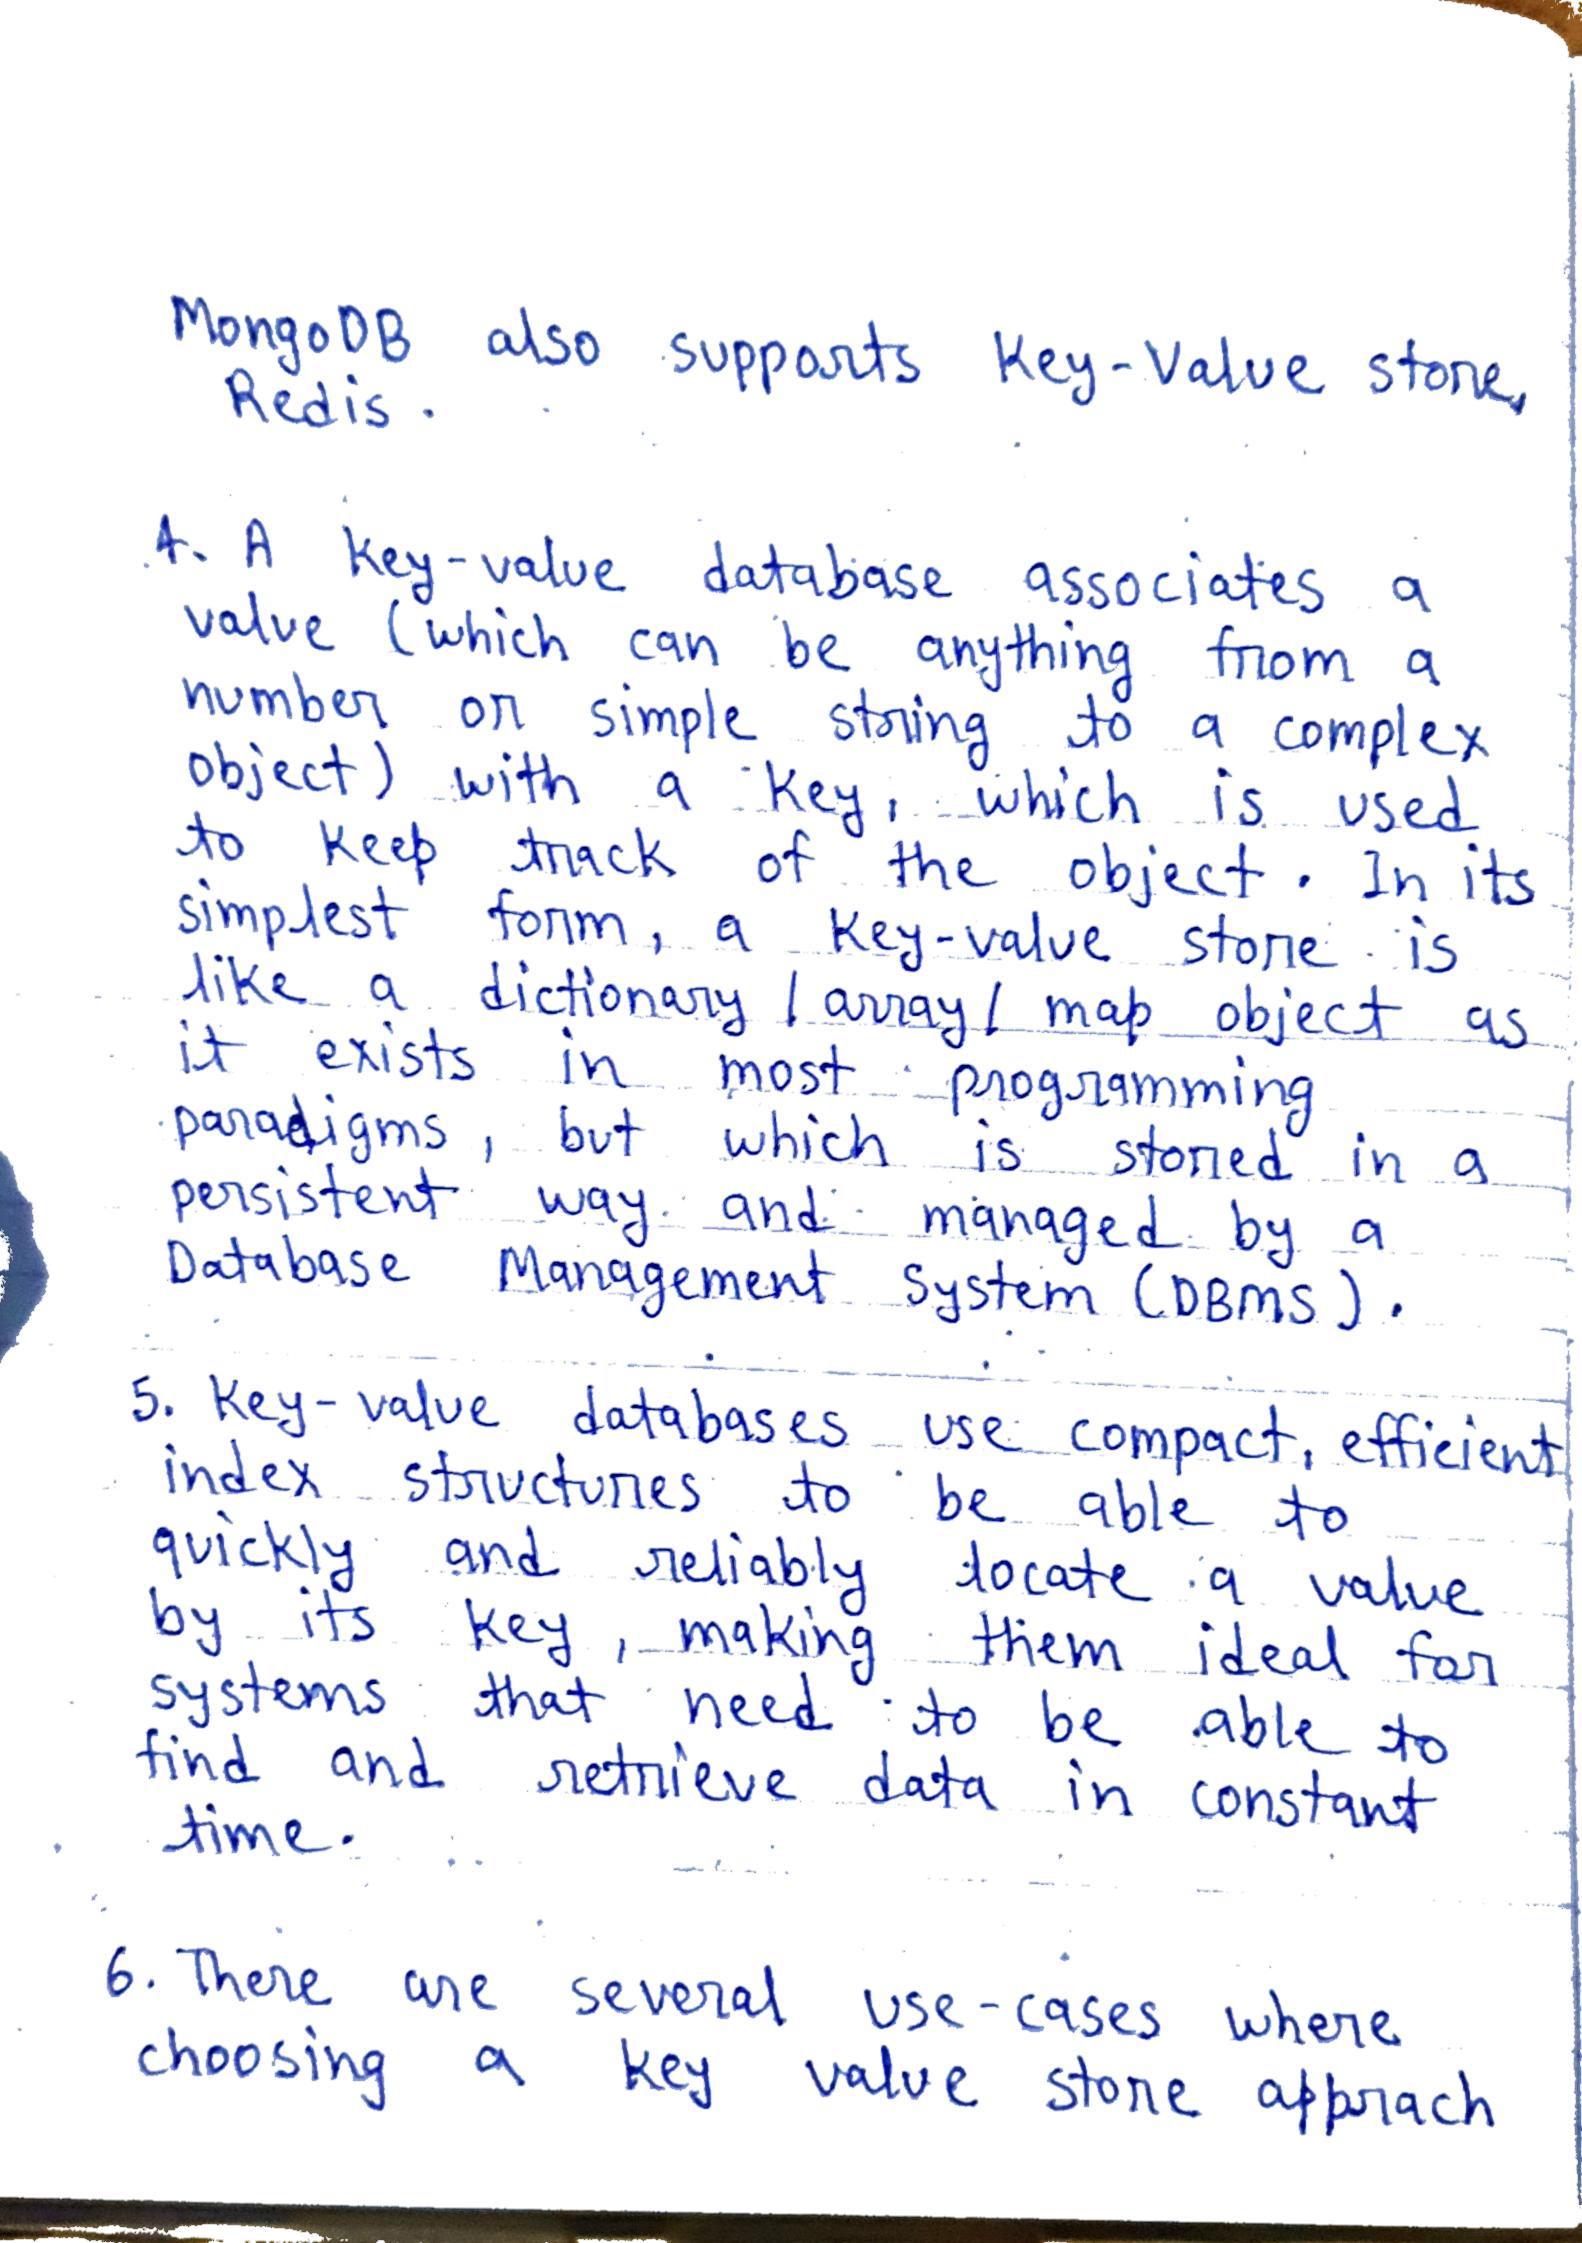 MongoDB also supports Key-Value store,
Redis.
4. A key-value database associates a
value (which can be anything from a
number or simple string to a complex
object) with a key, which is used
to keep track of the object. In its
simplest form, a key-value store is
like a dictionary / array / map object as
it exists in most programming
paradigms, but which is stored in a
persistent way and managed by a
Database Management System (DBMS).
5. Key-value databases use compact, efficient
index structures to be able to
quickly and reliably locate a value
by its key, making them ideal for
systems that need to be able to
find and retrieve data in constant
time.
6. There are several use-cases where
choosing a key value store apprach